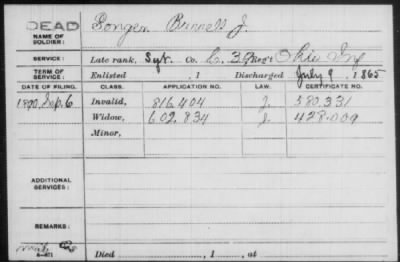 DEAD
NAME OF SOLDIER: Songer Burrell J.
SERVICE: Late rank, Sgt. Co. C. 39 Reg't Ohio Inf
TERM OF SERVICE: Enlisted , 1 Discharged July 9 , 1865
DATE OF FILING. CLASS. APPLICATION NO. LAW. CERTIFICATE NO.
1890, Sep. 6 Invalid, 816.404 J. 580.331
Widow, 602.834 J. 428.009
Minor,
ADDITIONAL SERVICES:
REMARKS:
Died , 1 , at